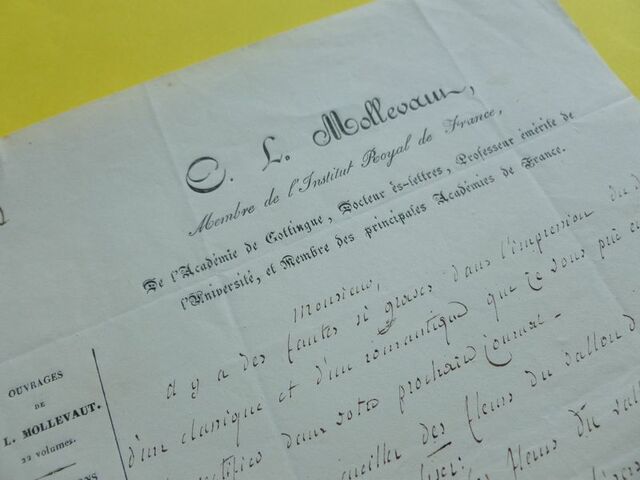 C. L. Mollevaut,
Membre de l'Institut Royal de France,
De l'Académie de Gottingue, Docteur ès-lettres, Professeur émérite de
l'Université, et Membre des principales Académies de France.
Monsieur,
il y a des fautes si graves dans l'impression du
d'un classique et d'un romantique que je vous prie
dans votre prochain journal.
cueillir des fleurs du vallon
fleurs du
OUVRAGES
DE
L. MOLLEVAUT.
22 volumes.